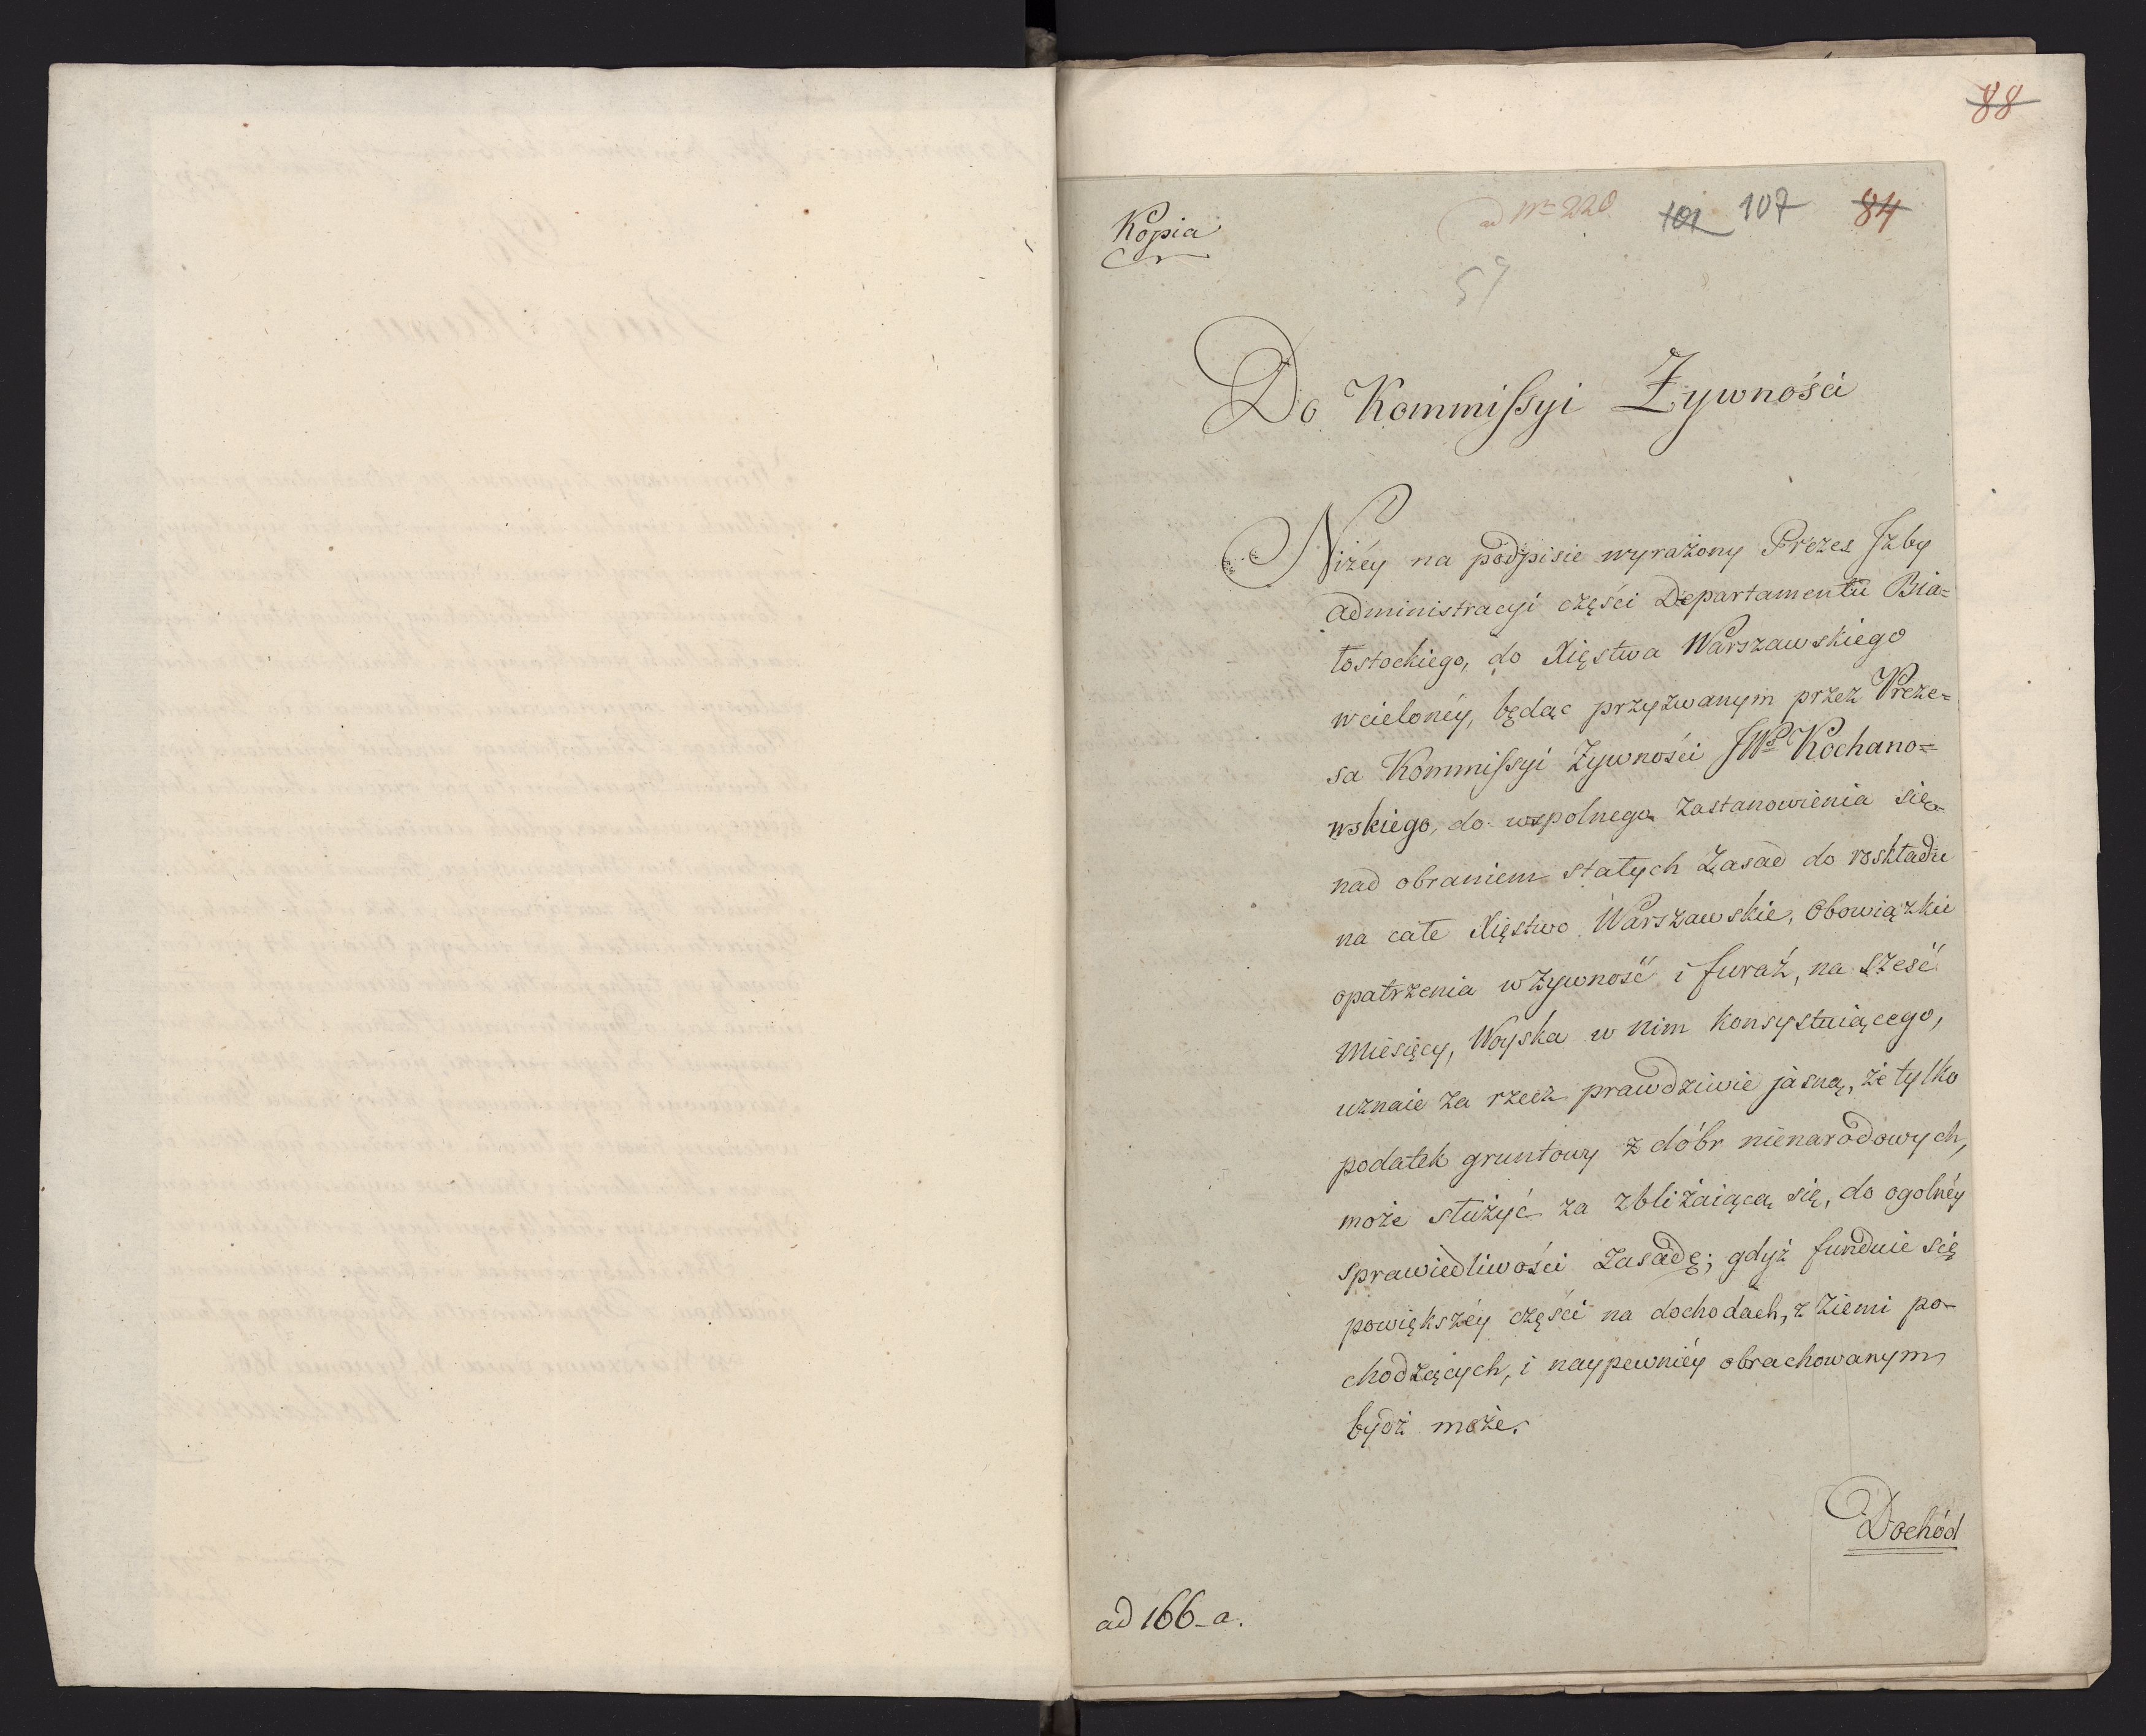 88
Kopia
ad Nro 220 101 107 84
Do Kommissyi Żywności
Niżéy na podpisie wyrażony Prezes Izby
administracyi części Departamentu Bia=
łostockiego, do Xięstwa Warszawskiego
wcielonéy, będąc przyzwanym przez Preze=
sa Kommissyi Żywności JWo Kochano=
wskiego, do wspolnego zastanowienia się
nad obraniem stałych Zasad do roskładu
na całe Xięstwo Warszawskie, Obowiązku
opatrzenia w Żywność i furaż, na sześć
Miesięcy, Woyska w nim Konsystuiącego,
uznaie za rzecz prawdziwie jasną, że tylko
podatek gruntowy z dóbr nienarodowych,
może służyć za zbliżaiącą się, do ogolnéy
sprawiedliwości Zasadę; gdyż funduie się
powiększéy części na dochodach, z Ziemi po-
chodzących, i naypewniéy obrachowanym
bydź może.
Dochód
ad 166-a.